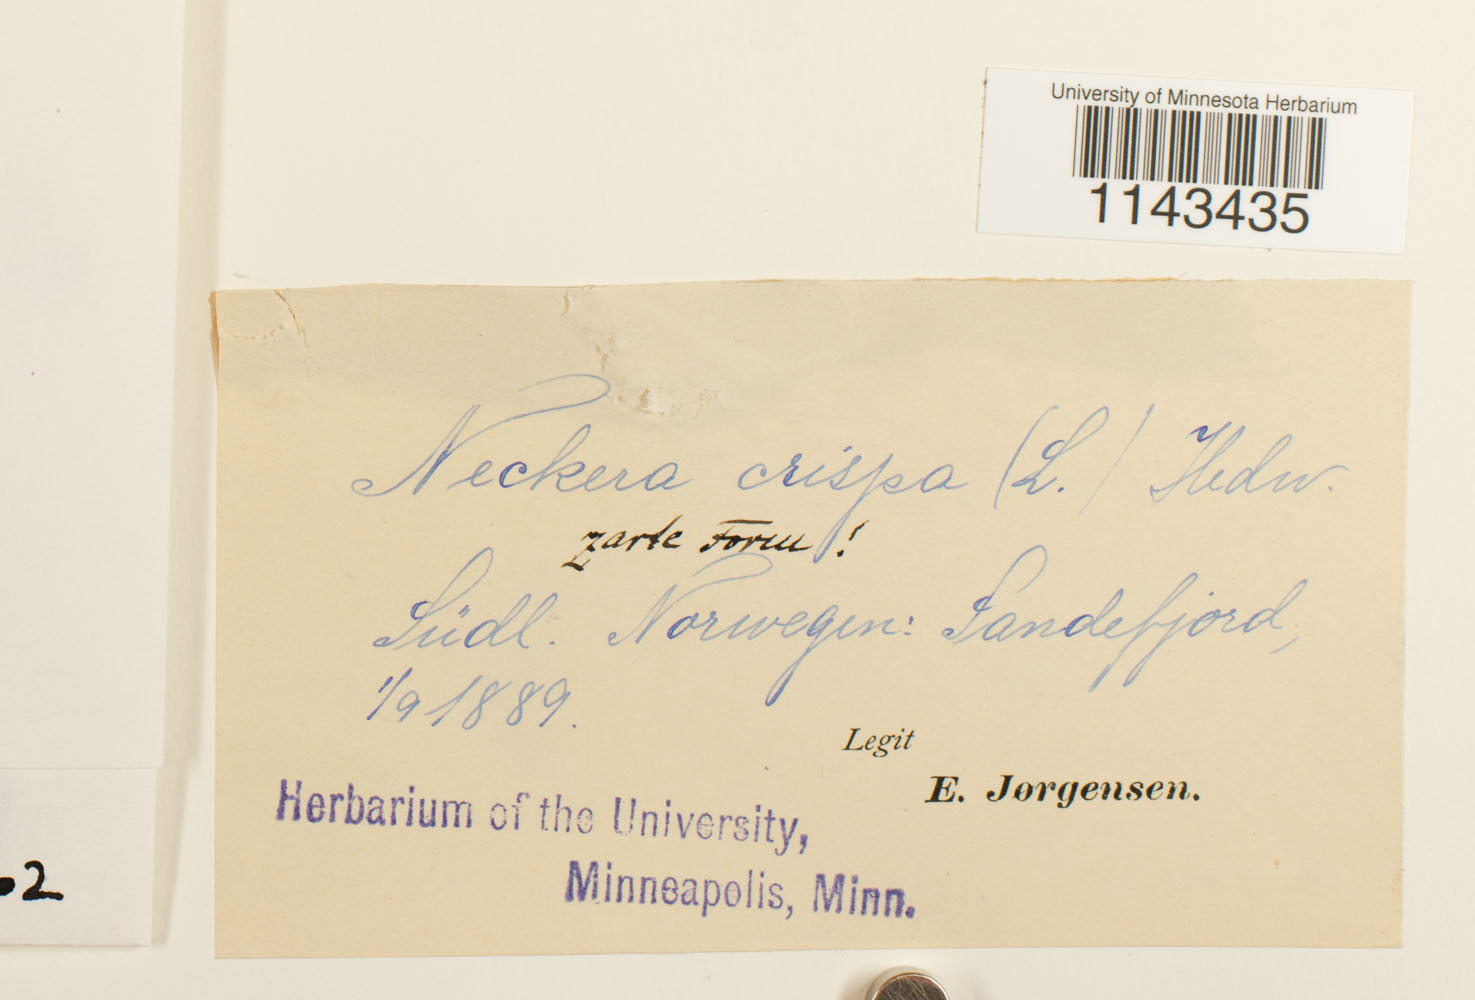 University of Minnesota Herbarium
1143435
Neckera crispa (L.) Hedw.
zarte Form!
Südl. Norwegen: Sandefjord,
1/9 1889.
Legit
E. Jørgensen.
Herbarium of the University,
Minneapolis, Minn.
.2